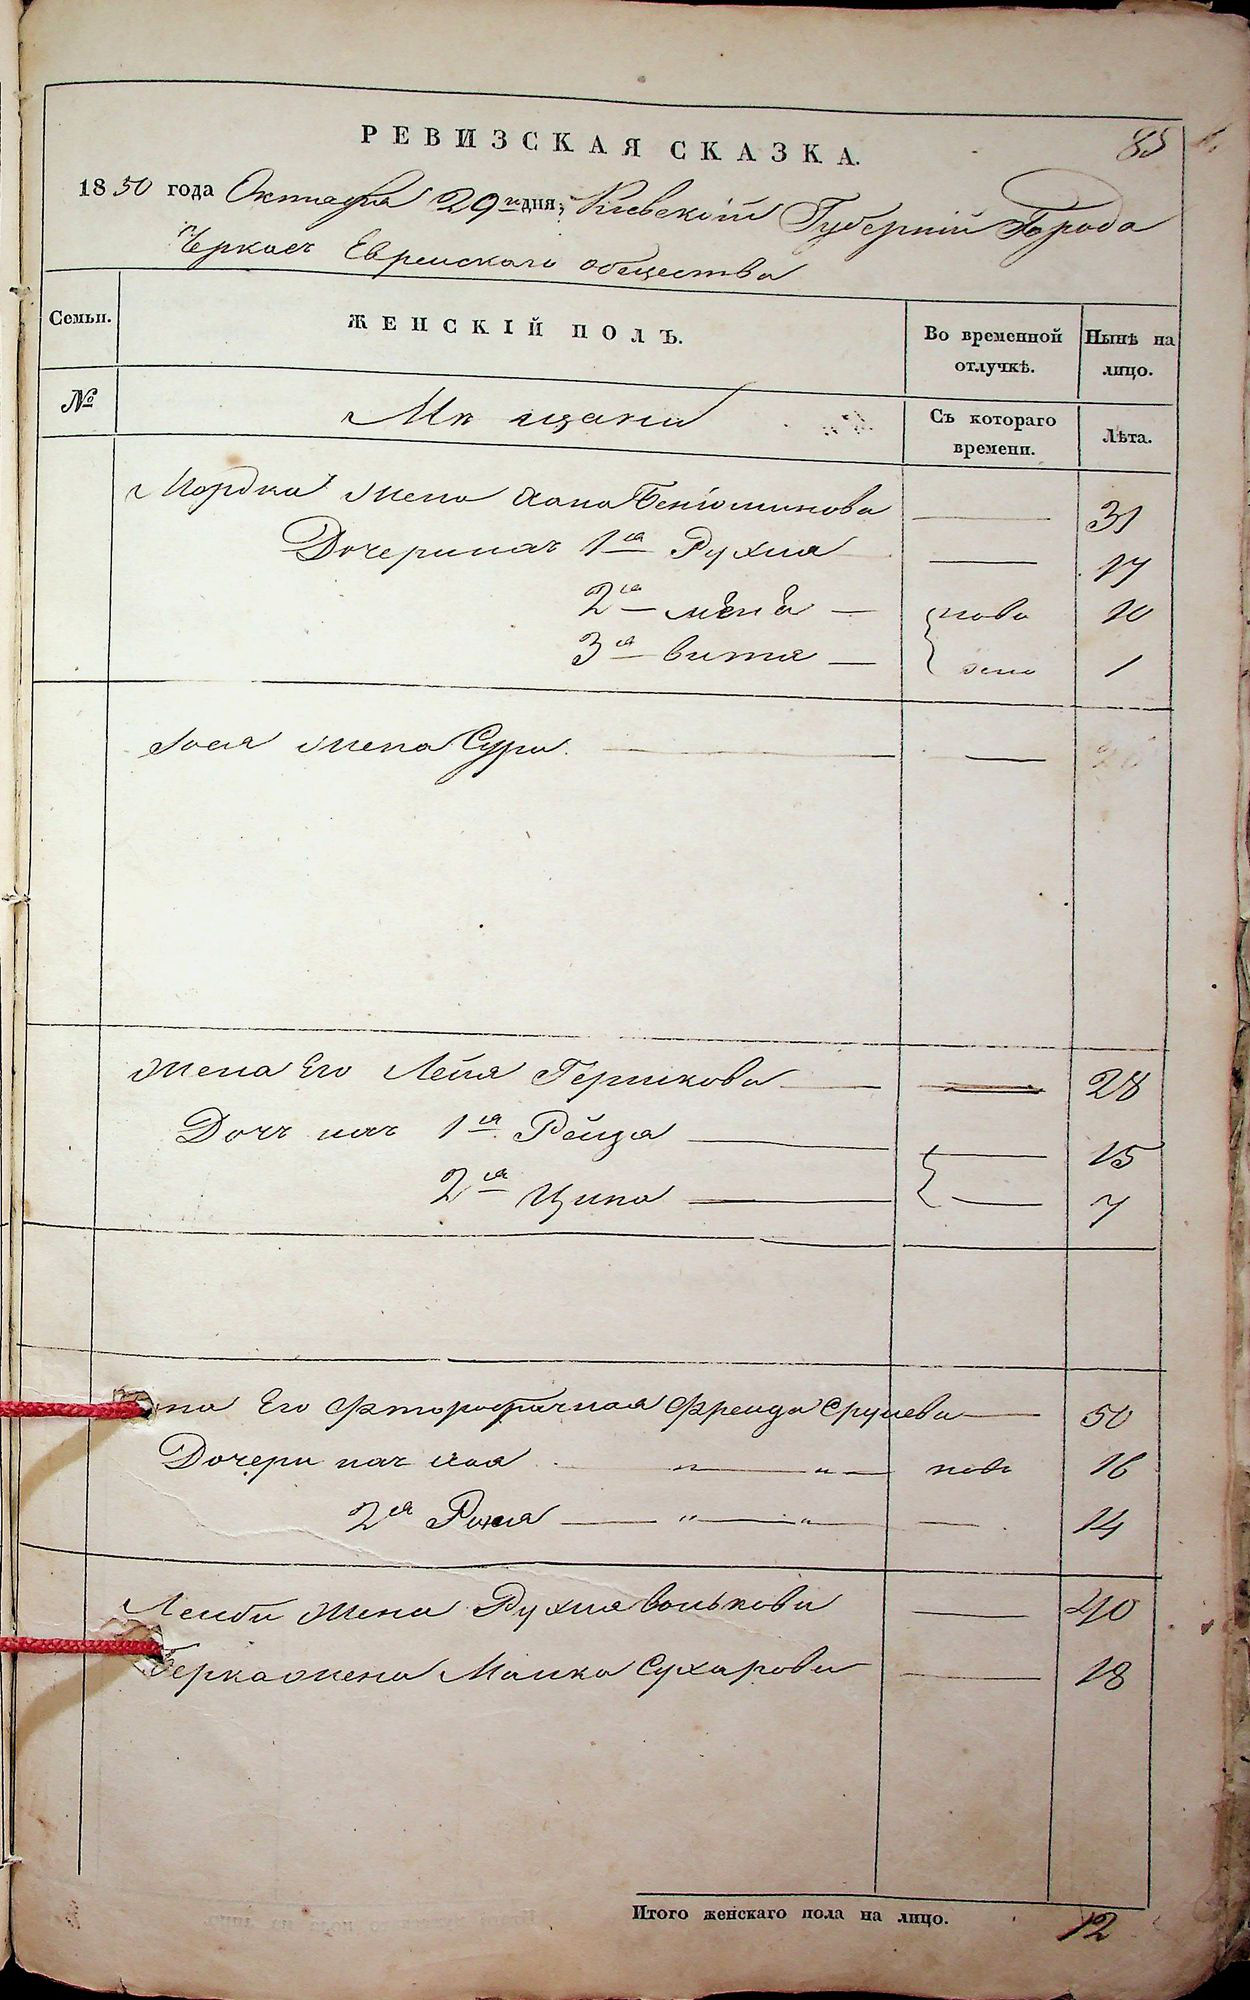 85
РЕВИЗСКАЯ СКАЗКА.
1850 года Октября 29 дня; Киевской Губерній Города
Черкас Еврейскаго общества
Семьи. ЖЕНСКІЙ ПОЛЪ. Во временной отлучкѣ. Ныне на лицо.
№ Мѣщане Съ котораго времени. Лѣта.
Мордка жена Хана Беніоминова — 31
Дочери нач 1я Рухля — 17
2я — — ново 10
3я Вита — 1
Жена Сура — —
Жена Его Лея Гершкова — 28
Доч нач 1я Рейза — 15
2я Ципа — 7
Его Фторобрачная Фрейда Срулева — 50
Дочери нач — „ — „ — 16
2я — „ — „ — 14
Лейби Жена Рухля Волькова — 40
Берка жена Малка Сухарова — 18
Итого женскаго пола на лицо. 12